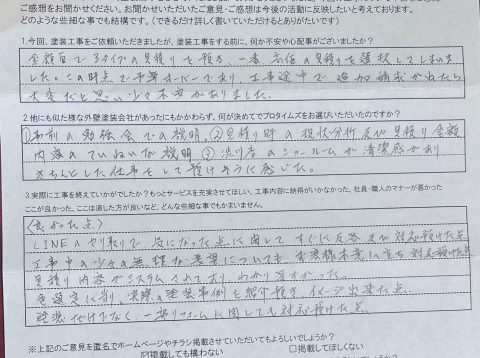 ご感想をお聞かせください。お聞かせいただいたご意見・ご感想は今後の活動に反映したいと考えております。
どのような些細な事でも結構です。(できるだけ詳しく書いていただけるとありがたいです)
1.今回、塗装工事をご依頼いただきましたが、塗装工事をする前に、何か不安や心配事がございましたか?
金額面で3タイプの見積りを頂き、一番高価の見積りを選択してしまいま
した。この時点で予算オーバーであり、工事途中で追加請求が出たら
大変だと思い少々不安がありました。
2.他にも似た様な外壁塗装会社があったにもかかわらず、何が決めてでプロタイムズをお選びいただいたのですか?
①事前の勉強会での説明、②見積り時の現状分析及び見積り金額
内容のていねいな説明、③渋川店のショールームが清潔感があり
きちんとした仕事をして頂けそうに感じた。
3.実際に工事を終えていかがでしたか?もっとサービスを充実させてほしい、工事内容に納得がいかなかった、社員・職人のマナーが悪かった
ここが良かった、ここは直した方が良いなど、どんな些細な事でもかまいません。
〈良かった点〉
LINEのやり取りで、気になった点に関して すぐに返答及び対応頂けた点
工事中の少々の無理な要望についても、お客様本意に立ち対応頂けた点
見積り内容がシステム化されており、わかり易かった。
色選定に前し、実際の塗装事例も紹介頂き、イメージ出来た点
塗装だけでなく、一部リフォームに関しても対応頂けた点
※上記のご意見を匿名でホームページやチラシ掲載させていただいてもよろしいでしょうか?
☑掲載しても構わない □掲載してほしくない